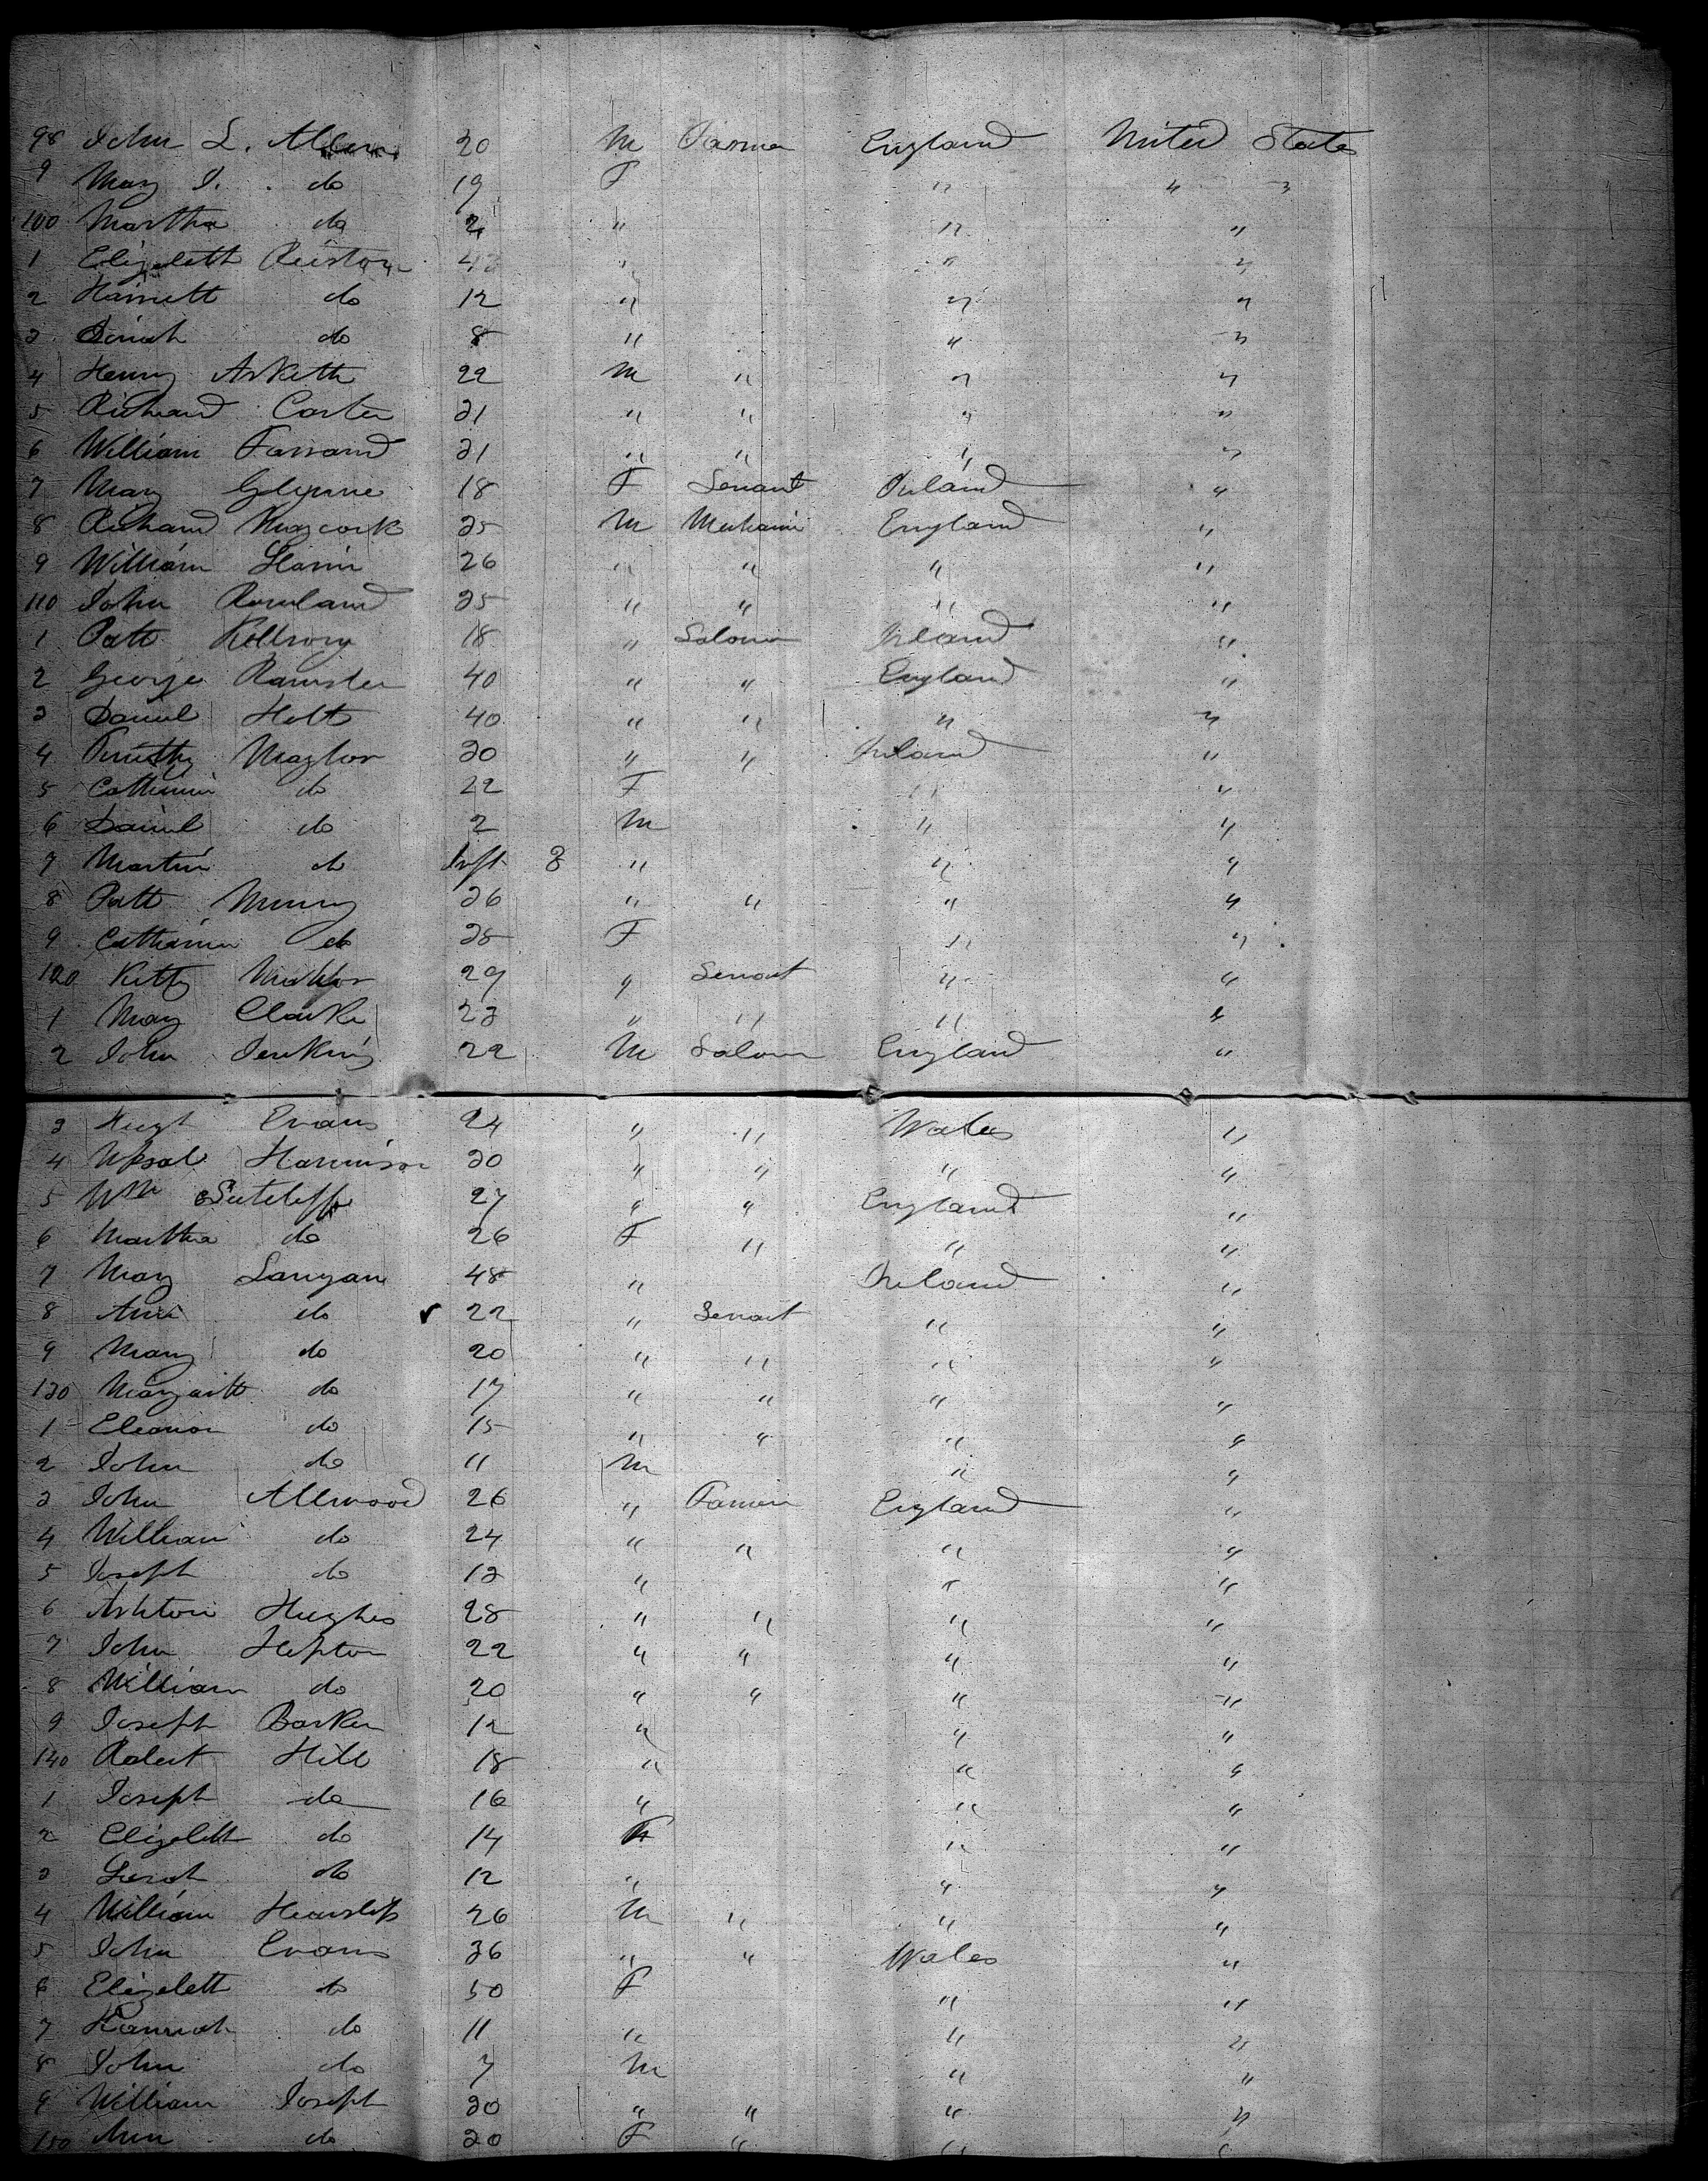 98 John L. Allen 30 M Farmer England United States
9 Mary I. do 19 F " " "
100 Martha do 2 " " "
1 Elizabeth 43 " " "
2 Harriett do 12 " " "
3 do 8 " " "
4 Henry Askith 22 M " " "
5 Richard Carter 31 " " " "
6 William Farrand 31 " " " "
7 Mary Glynne 18 F Servant Ireland "
8 Richard 35 M Mechanic England "
9 William 26 " " " "
110 John Rowland 35 " " " "
1 Patt 18 " Laborer Ireland "
2 George 40 " " England "
3 Daniel Holt 40 " " " "
4 30 " " Ireland "
5 Catherine do 22 F " "
6 Daniel do 2 M " "
7 Martin do Inft 8 " " "
8 Patt 36 " " " "
9 Catharine do 35 F " "
120 Kitty 29 " Servant " "
1 Mary Clarke 23 " " " "
2 John Jenkins 22 M Laborer England "
3 Hugh Evans 24 " " Wales "
4 Harrison 30 " " " "
5 Wm Sutcliffe 27 " " England "
6 Martha do 26 F " " "
7 Mary Langan 48 " Ireland "
8 Ann do 22 " Servant " "
9 Mary do 20 " " " "
130 Margarett do 17 " " " "
1 Eleanor do 15 " " " "
2 John do 11 M " "
3 John Allwood 26 " Farmer England "
4 William do 24 " " " "
5 Joseph do 13 " " "
6 Ashton Hughes 28 " " " "
7 John Hepton 22 " " " "
8 William do 20 " " " "
9 Joseph Barker 12 " " "
140 Robert Hill 18 " " "
1 Joseph do 16 " " "
2 Elizabeth do 14 F " "
3 Sarah do 12 " " "
4 William 26 M " " "
5 John Evans 36 " " Wales "
6 Elizabeth do 50 F " "
7 Hannah do 11 " " "
8 John do 7 M " "
9 William Joseph 30 " " " "
150 Ann do 30 F " " "